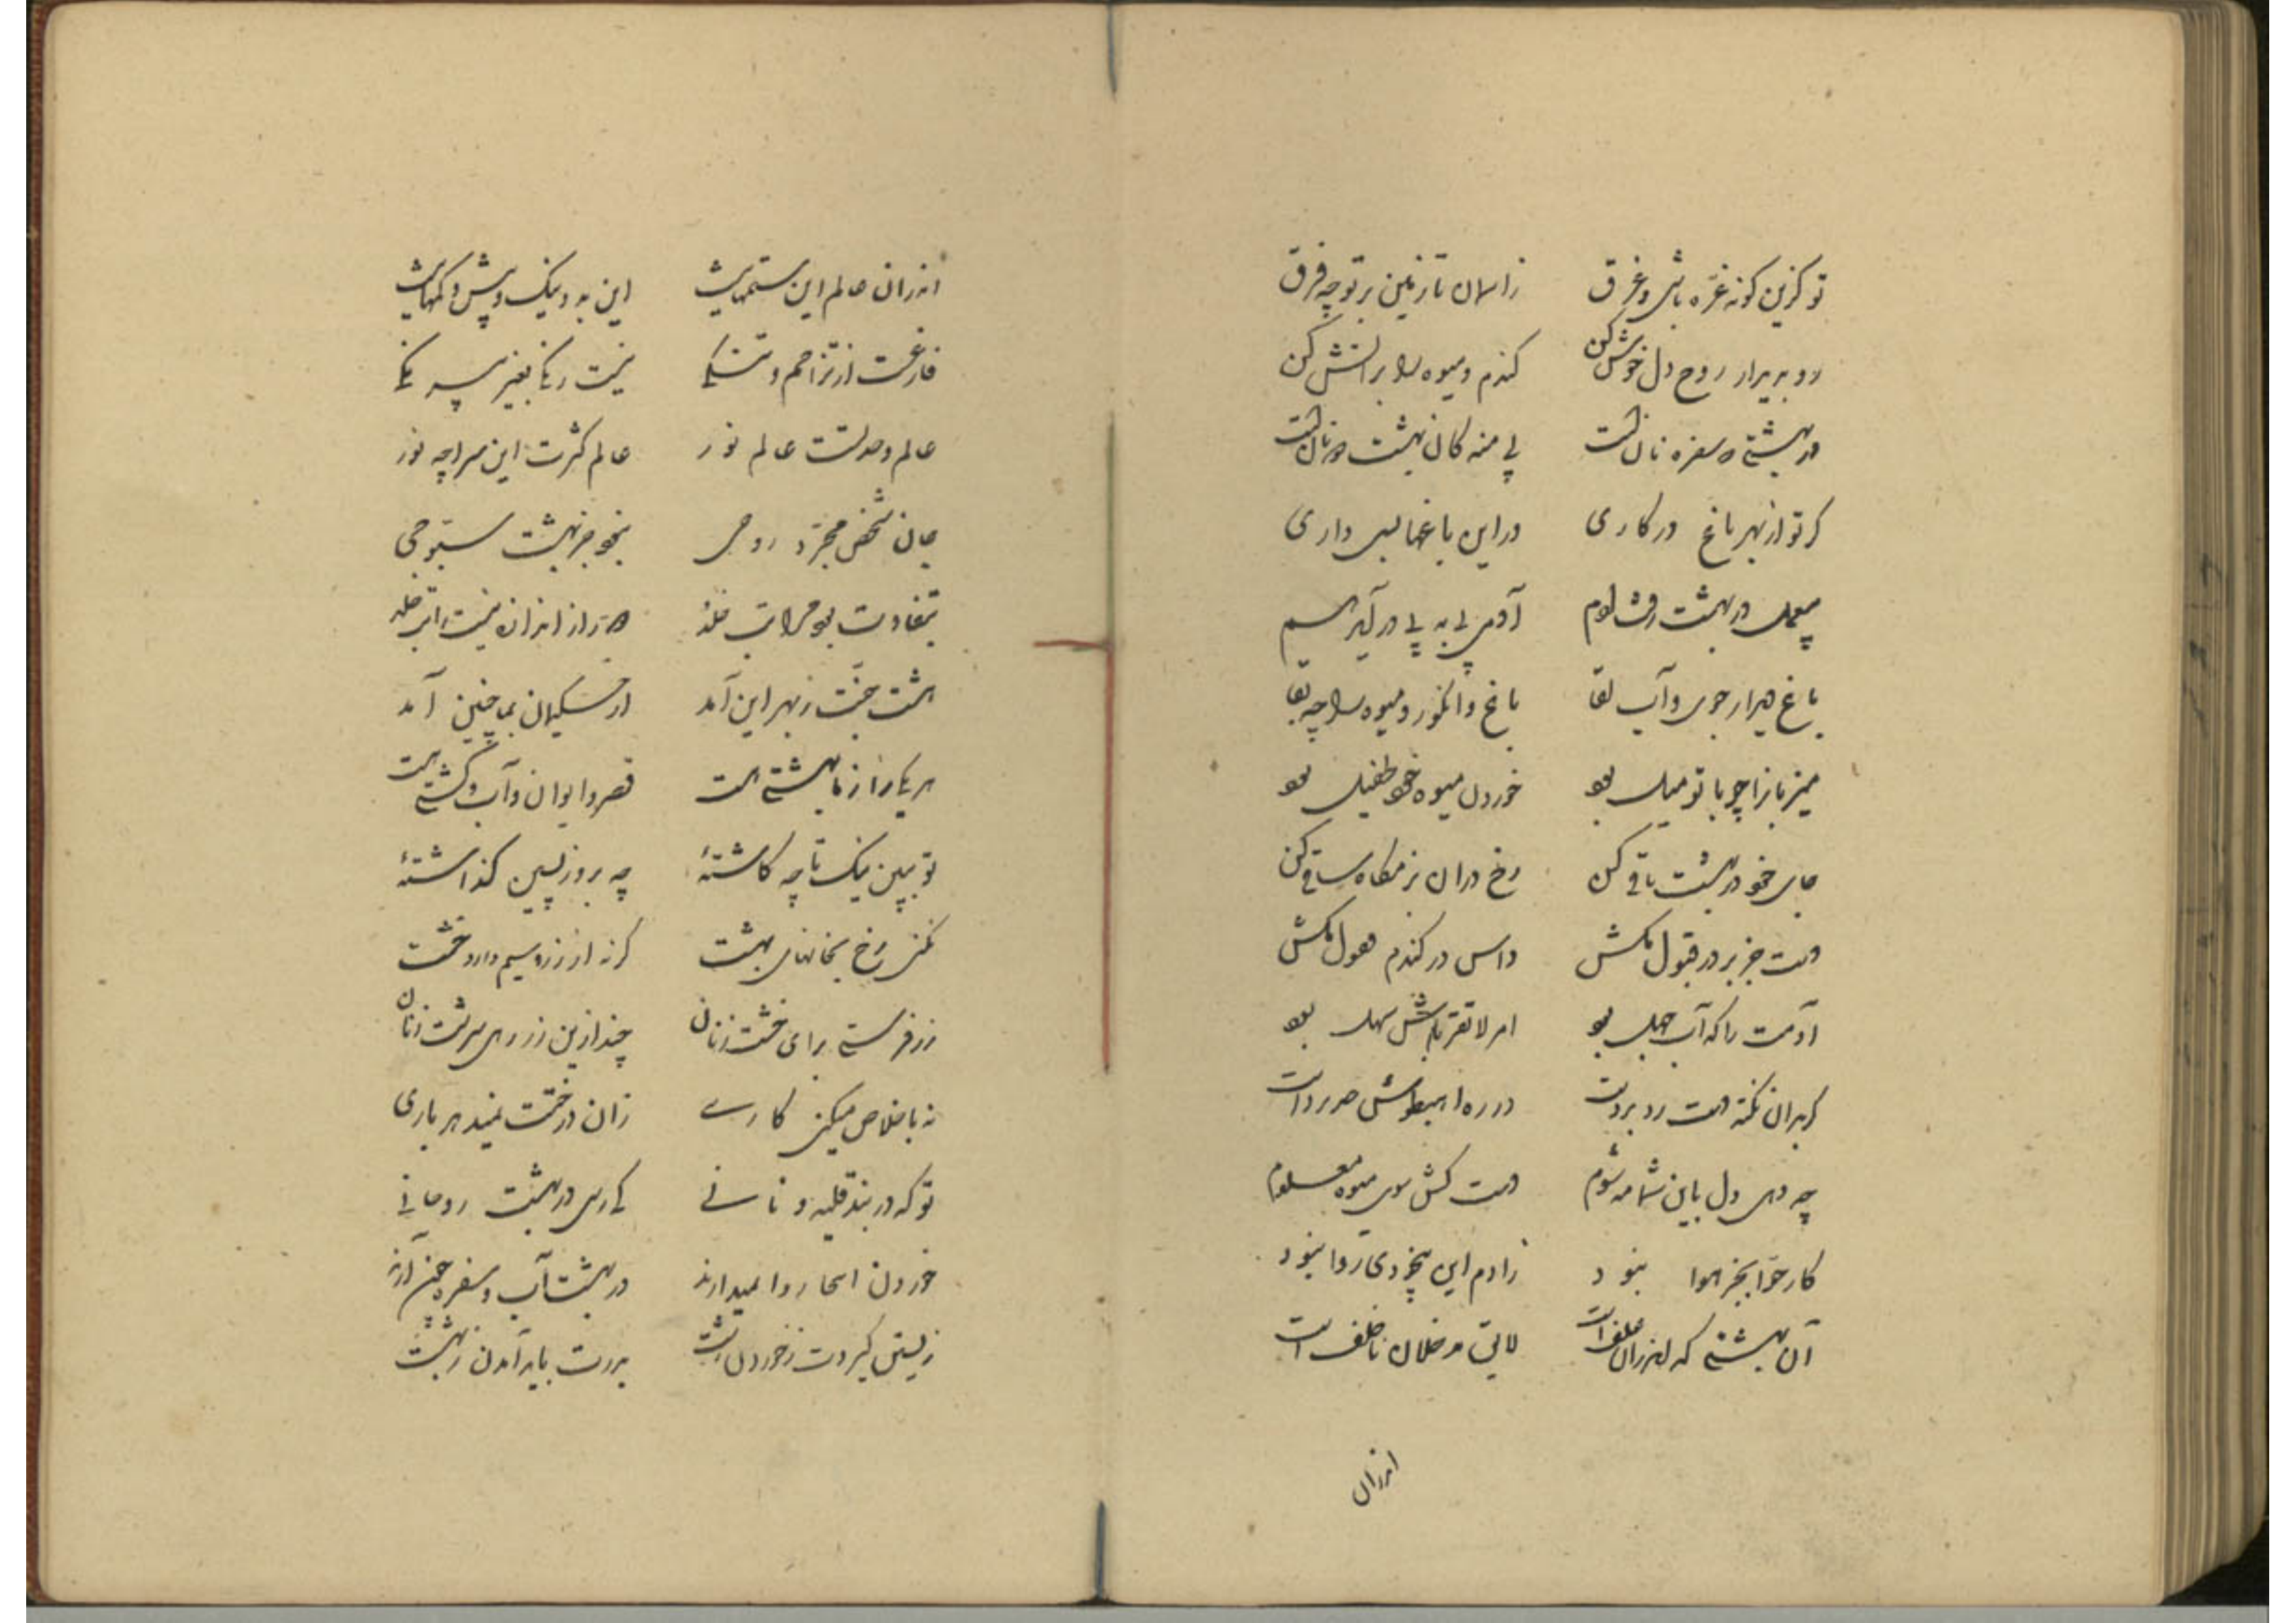 تو کزین کونه غرّه باشی و غرق زاسمان تا زمین بر تو چه فرق
رو بدیدار روح دل خوش کن کندم و میوه را بر آتش کن
در بهشتی و سفره نانت پی منه کان بهشت
کر تو از بهر باغ در کاری در این باغها بسی داری
در بهشت آدمی بی به پی در
باغ هزار جوی و آب لقا باغ و انکور و میوه را چه بقا
میزبانرا چو با تو میل بود خوردن میوه خود طفیل بود
جای خود در بهشت باقی کن رخ در آن بزمکاه ساقی کن
دست جز بر در قبول مکش داس در کندم فضول مکش
آدمت را که آب جهل بود امر لا تقربا بسش سهل بود
کر بدان نکته دست رد بردست در ره اهبطواش
چه دهی دل باین شمامه شوم دست کش سوی میوه معلوم
کار حوّا بجز هوا نبود زادم این بیخودی روا نبود
آن بهشتی که اندران علف است لایق مدخلان ناخلف است
اندران
اندران عالم این ستمها نیست این بد و نیک و بیش و کمها نیست
فارغست از تزاحم و تنکی نیست رنکی بغیر بیرنکی
عالم وحدتست عالم نور عالم کثرت این سراچه زور
جان شخص مجرّد روحی نجهد جز بهشت سبّوحی
بتفاوت بود مراتب خلد
هشت جنّت ز بهر این آمد این آمد
هر یکی را ازما بهشتی هست قصر و ایوان و آب و کشتی هست
تو ببین نیک تا چه کاشتهٔ چه بروز پسین کذاشتهٔ
نکنی رخ بخانهای بهشت کر نه از زر و سیم دارد خشت
زر فرستی برای خشت زنان چند ازین زر دهی
نه باخلاص میکنی کاری زان درختت نمیدهد باری
تو که در بند قلیه و نانی کی رسی در بهشت روحانی
خوردن اینجا روا نمیدارند در بهشت آب و سفره چون آرند
زیستن کیردت ز خوردن زشت بدرت باید آمدن ز بهشت